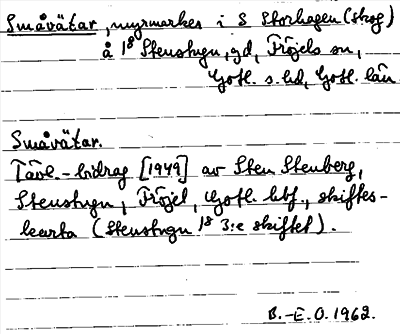 Småvätar, myrmarker i S Storhagen (skog)
å 1⁸ Stenstugu, gd, Fröjels sn,
Gotl. s. hd, Gotl. län
Småvätar.
Tävl.-bidrag [1949] av Sten Stenberg,
Stenstugu, Fröjel, Gotl. lbf., skiftes-
karta (Stenstugu 1⁸ 3:e skiftet).
B.-E. O. 1962.